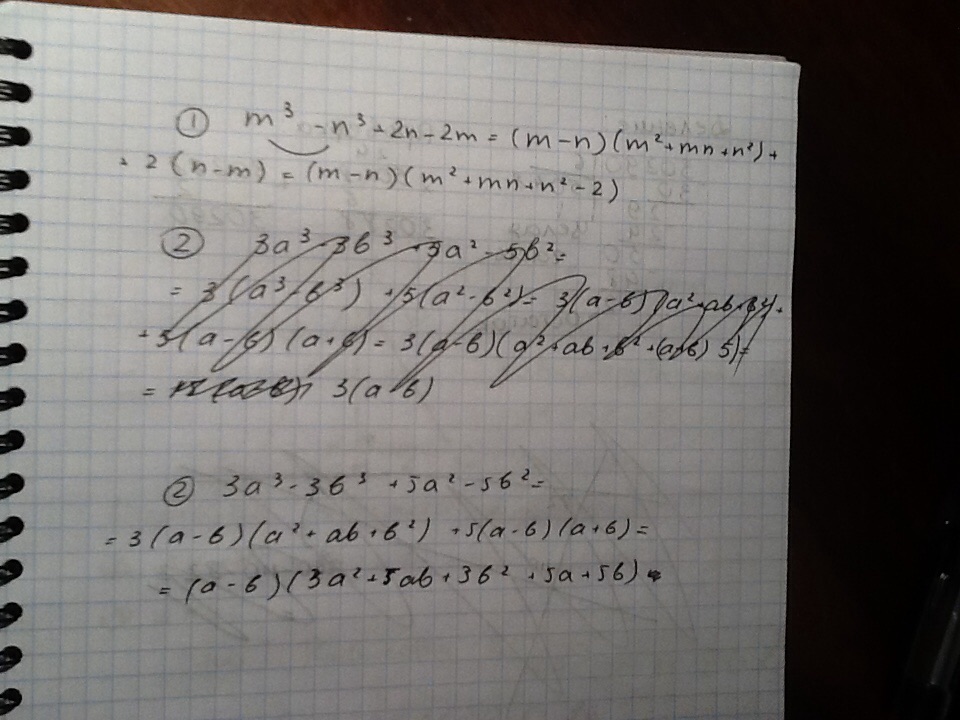 ① m³ - n³ + 2n - 2m = (m - n)(m² + mn + n²) +
+ 2(n - m) = (m - n)(m² + mn + n² - 2)
② 3a³ - 3b³ + 5a² - 5b² =
= 3(a³ - b³) + 5(a² - b²) = 3(a - b)(a² + ab + b²) +
+ 5(a - b)(a + b) = 3(a - b)(a² + ab + b² + (a + b) 5) =
= 3(a - b)
② 3a³ - 3b³ + 5a² - 5b² =
= 3(a - b)(a² + ab + b²) + 5(a - b)(a + b) =
= (a - b)(3a² + 3ab + 3b² + 5a + 5b)